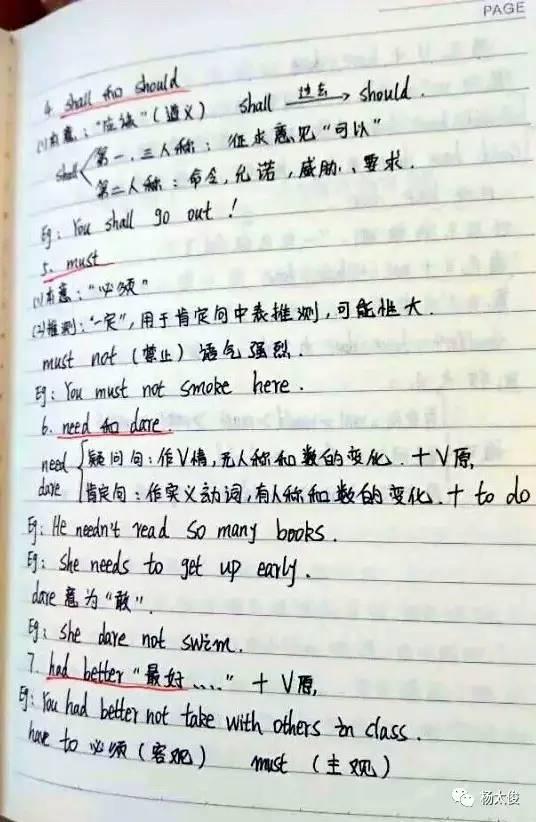 PAGE
4. shall 和 should
(1)本意："应该"(道义) shall 过去→ should.
shall 第一、三人称：征求意见"可以"
第二人称：命令,允诺,威胁、要求.
Eg: You shall go out !
5. must
(1)本意："必须"
(2)推测："一定", 用于肯定句中表推测,可能性大.
must not (禁止) 语气强烈.
Eg: You must not smoke here.
6. need 和 dare.
need 疑问句：作V情,无人称和数的变化.+V原,
dare 肯定句：作实义动词,有人称和数的变化.+ to do
Eg: He needn't read so many books.
Eg: She needs to get up early.
dare 意为"敢".
Eg: She dare not swim.
7. had better "最好...." + V原,
Eg: You had better not take with others in class.
have to 必须(客观) must (主观)
杨太俊